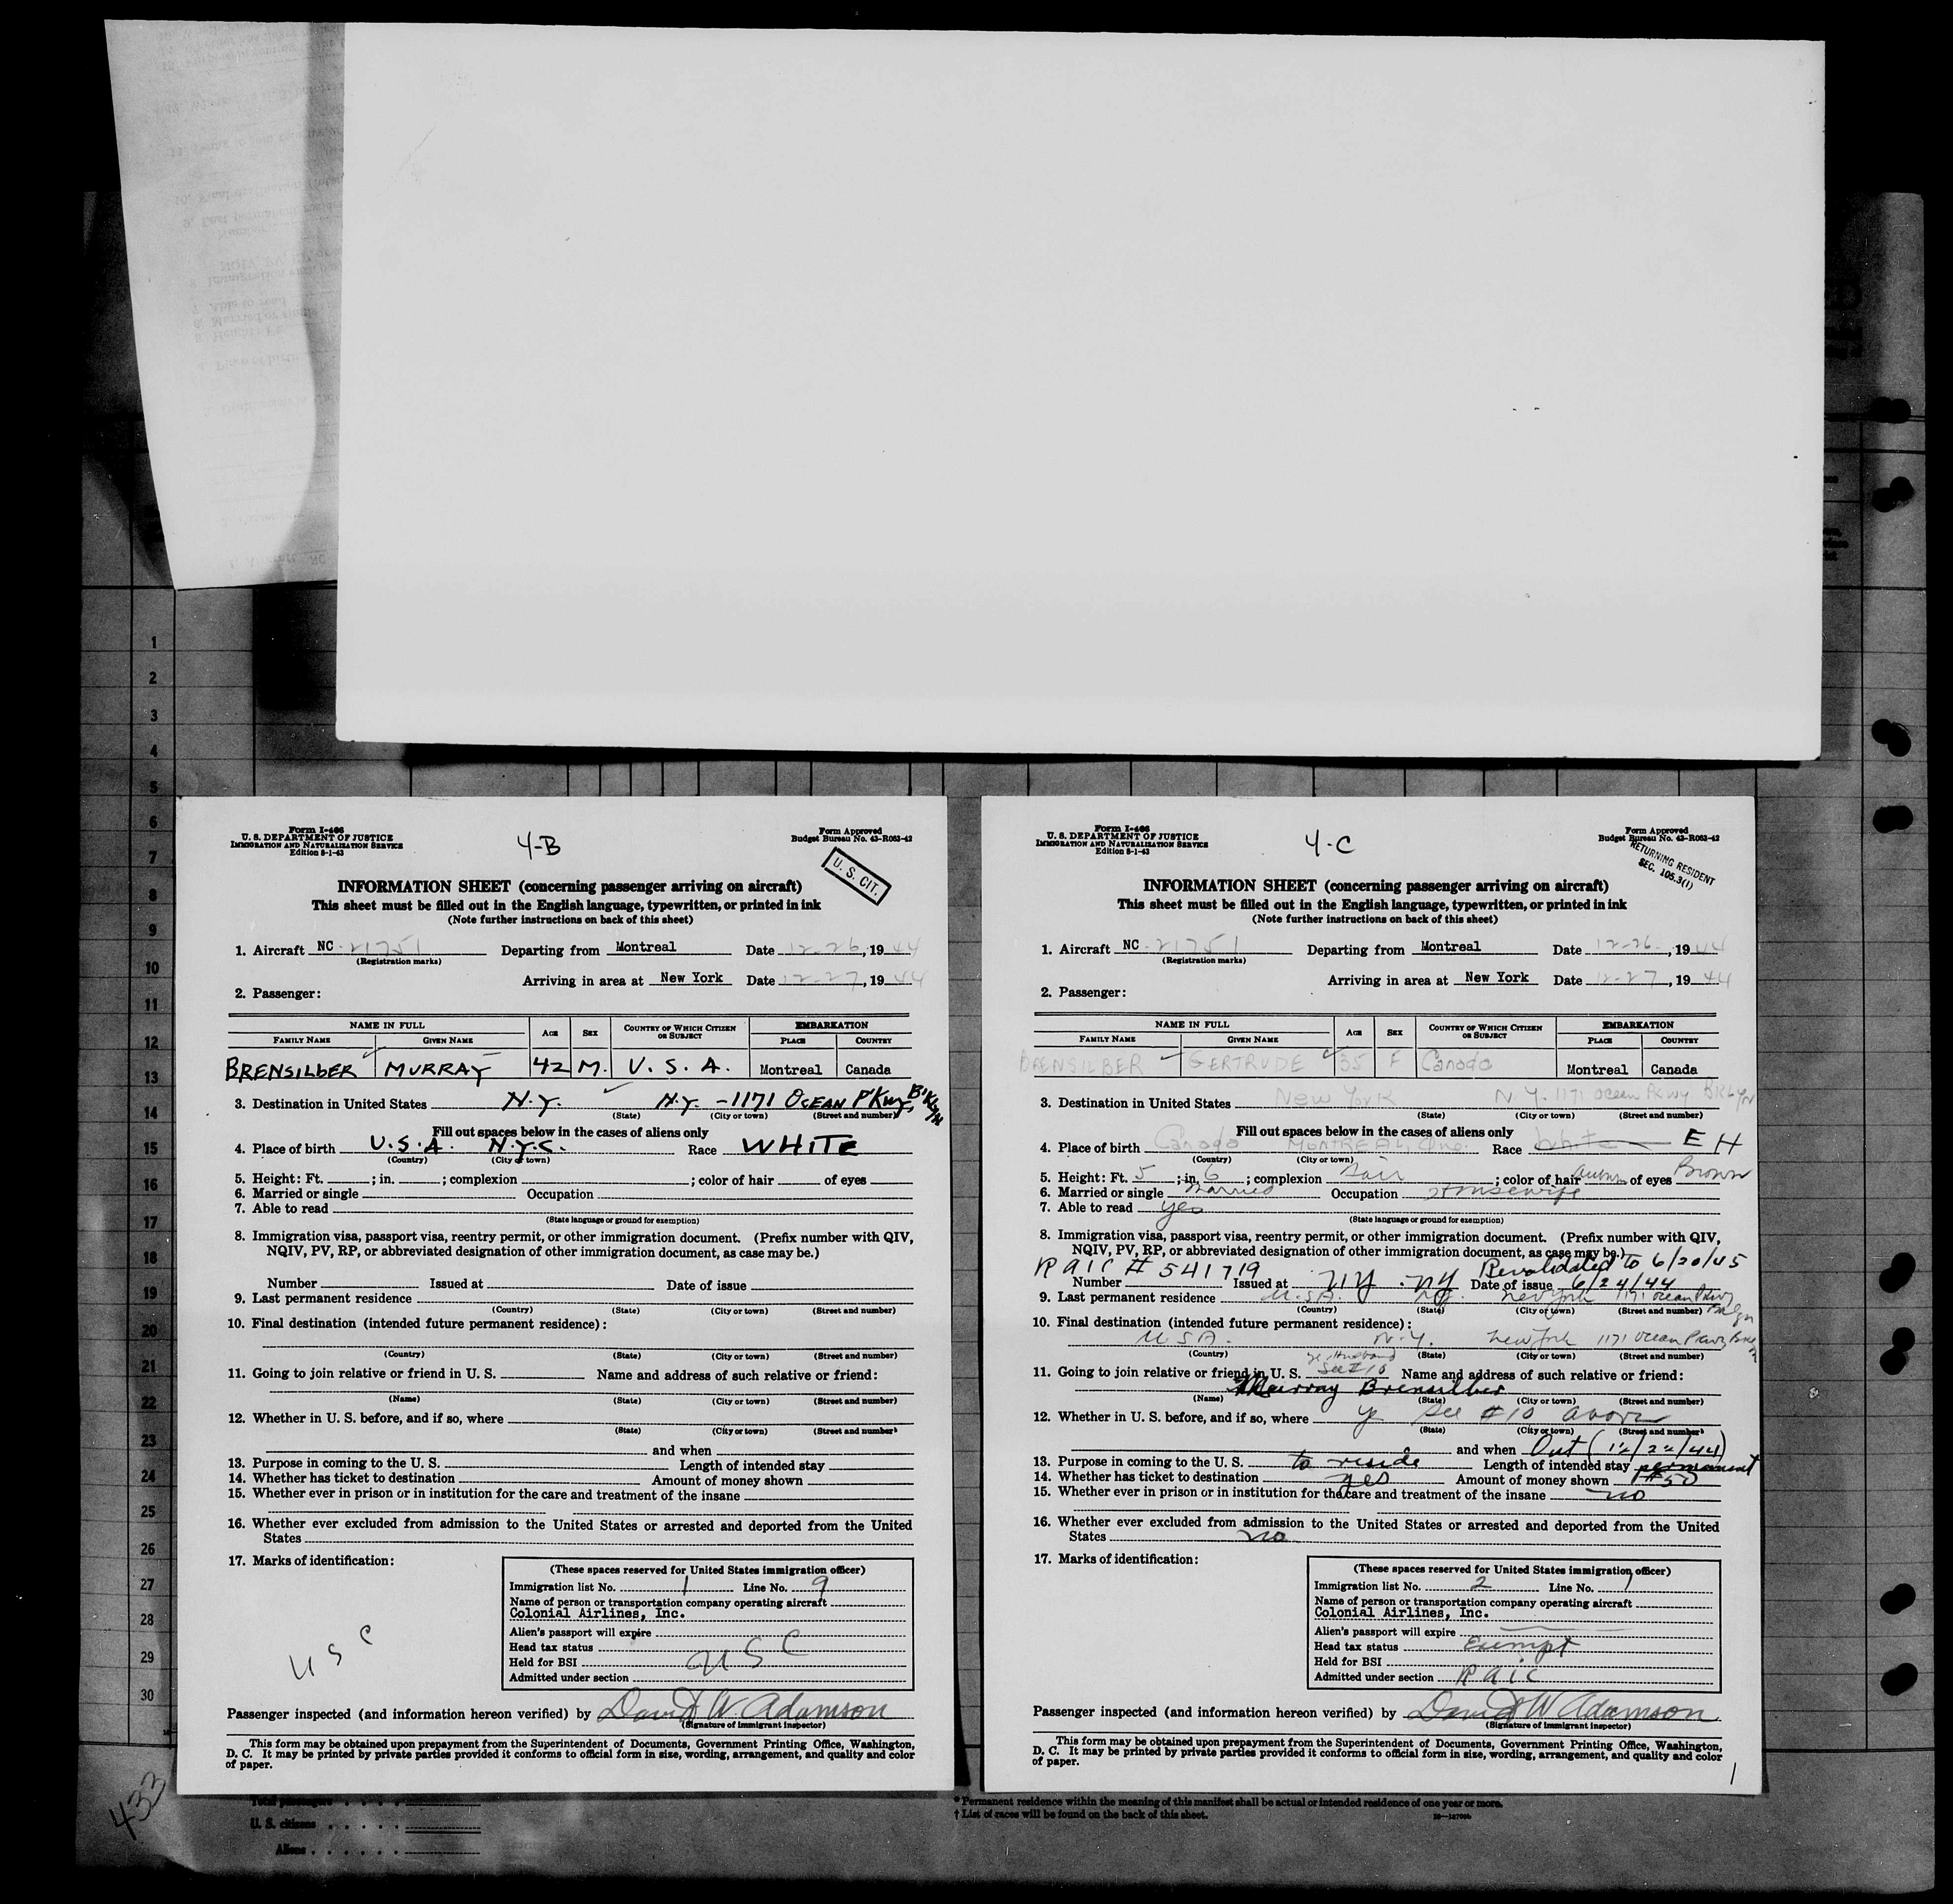 1
2
3
4
5
6
7
8
9
10
11
12
13
14
15
16
17
18
19
20
21
22
23
24
25
26
27
28
29
30
433
Form I-466
U. S. DEPARTMENT OF JUSTICE
IMMIGRATION AND NATURALIZATION SERVICE
Edition 8-1-43
4-B
Form Approved
Budget Bureau No. 43-R063-42
U. S. CIT.
INFORMATION SHEET (concerning passenger arriving on aircraft)
This sheet must be filled out in the English language, typewritten, or printed in ink
(Note further instructions on back of this sheet)
1. Aircraft NC-21751 Departing from Montreal Date 12-26, 19 44
(Registration marks)
Arriving in area at New York Date 12-27, 19 44
2. Passenger:
NAME IN FULL AGE SEX COUNTRY OF WHICH CITIZEN OR SUBJECT EMBARKATION
FAMILY NAME GIVEN NAME PLACE COUNTRY
BRENSILBER MURRAY 42 M. U. S. A. Montreal Canada
3. Destination in United States N.Y. N.Y. - 1171 OCEAN PKWY, BKLYN
(State) (City or town) (Street and number)
Fill out spaces below in the cases of aliens only
4. Place of birth U.S.A. N.Y.C. Race WHITE
(Country) (City or town)
5. Height: Ft. ; in. ; complexion ; color of hair of eyes
6. Married or single Occupation
7. Able to read
(State language or ground for exemption)
8. Immigration visa, passport visa, reentry permit, or other immigration document. (Prefix number with QIV,
NQIV, PV, RP, or abbreviated designation of other immigration document, as case may be.)
Number Issued at Date of issue
9. Last permanent residence
(Country) (State) (City or town) (Street and number)
10. Final destination (intended future permanent residence):
(Country) (State) (City or town) (Street and number)
11. Going to join relative or friend in U. S. Name and address of such relative or friend:
(Name) (State) (City or town) (Street and number)
12. Whether in U. S. before, and if so, where
(State) (City or town) (Street and number)
and when
13. Purpose in coming to the U. S. Length of intended stay
14. Whether has ticket to destination Amount of money shown
15. Whether ever in prison or in institution for the care and treatment of the insane
16. Whether ever excluded from admission to the United States or arrested and deported from the United
States
17. Marks of identification:
U S C
(These spaces reserved for United States immigration officer)
Immigration list No. 1 Line No. 9
Name of person or transportation company operating aircraft
Colonial Airlines, Inc.
Alien's passport will expire
Head tax status
Held for BSI U S C
Admitted under section
Passenger inspected (and information hereon verified) by David W. Adamson
(Signature of immigrant inspector)
This form may be obtained upon prepayment from the Superintendent of Documents, Government Printing Office, Washington,
D. C. It may be printed by private parties provided it conforms to official form in size, wording, arrangement, and quality and color
of paper.
Form I-466
U. S. DEPARTMENT OF JUSTICE
IMMIGRATION AND NATURALIZATION SERVICE
Edition 8-1-43
4-C
Form Approved
Budget Bureau No. 43-R063-42
RETURNING RESIDENT
SEC. 105.3(1)
INFORMATION SHEET (concerning passenger arriving on aircraft)
This sheet must be filled out in the English language, typewritten, or printed in ink
(Note further instructions on back of this sheet)
1. Aircraft NC-21751 Departing from Montreal Date 12-26-, 19 44
(Registration marks)
Arriving in area at New York Date 12-27, 19 44
2. Passenger:
NAME IN FULL AGE SEX COUNTRY OF WHICH CITIZEN OR SUBJECT EMBARKATION
FAMILY NAME GIVEN NAME PLACE COUNTRY
BRENSILBER GERTRUDE 35 F Canada Montreal Canada
3. Destination in United States New York N.Y. 1171 Ocean Pkwy BKLYN
(State) (City or town) (Street and number)
Fill out spaces below in the cases of aliens only
4. Place of birth Canada MONTREAL, Que. Race White E H
(Country) (City or town)
5. Height: Ft. 5 ; in. 6 ; complexion Fair ; color of hair auburn of eyes Brown
6. Married or single Married Occupation Housewife
7. Able to read yes
(State language or ground for exemption)
8. Immigration visa, passport visa, reentry permit, or other immigration document. (Prefix number with QIV,
NQIV, PV, RP, or abbreviated designation of other immigration document, as case may be.)
RAIC # 541719 Revalidated to 6/20/45
Number Issued at NY. NY Date of issue 6/24/44
9. Last permanent residence U.S.A. N.Y. New York 1171 Ocean Pkwy
(Country) (State) (City or town) (Street and number)
10. Final destination (intended future permanent residence):
U S A. N.Y. New York 1171 Ocean Pkwy Bklyn
(Country) (State) (City or town) (Street and number)
Husband
11. Going to join relative or friend in U. S. See # 10 Name and address of such relative or friend:
Murray Brensilber
(Name) (State) (City or town) (Street and number)
12. Whether in U. S. before, and if so, where See #10 above
(State) (City or town) (Street and number)
and when Out (12/22/44)
13. Purpose in coming to the U. S. to reside Length of intended stay permanent
14. Whether has ticket to destination yes Amount of money shown $50
15. Whether ever in prison or in institution for the care and treatment of the insane no
16. Whether ever excluded from admission to the United States or arrested and deported from the United
States no
17. Marks of identification:
(These spaces reserved for United States immigration officer)
Immigration list No. 2 Line No. 1
Name of person or transportation company operating aircraft
Colonial Airlines, Inc.
Alien's passport will expire
Head tax status Exempt
Held for BSI
Admitted under section RAIC
Passenger inspected (and information hereon verified) by David W Adamson
(Signature of immigrant inspector)
This form may be obtained upon prepayment from the Superintendent of Documents, Government Printing Office, Washington,
D. C. It may be printed by private parties provided it conforms to official form in size, wording, arrangement, and quality and color
of paper.
1
Total passengers
U. S. citizens
Aliens
* Permanent residence within the meaning of this manifest shall be actual or intended residence of one year or more.
† List of races will be found on the back of this sheet.